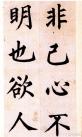 非己心不
明也欲人